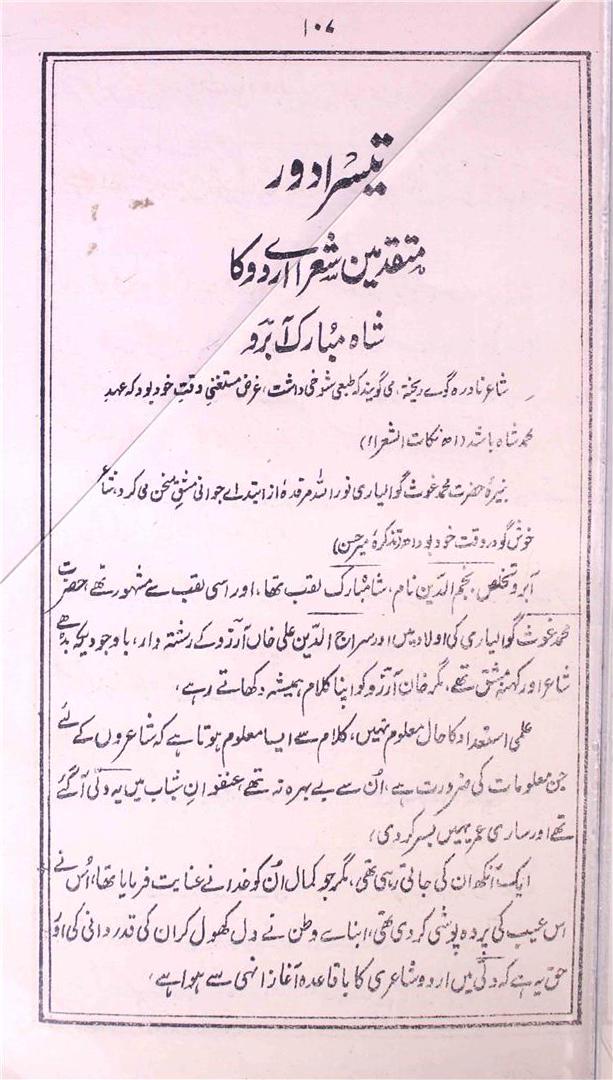 ۱۰۷
تیسرا دور
متقدمین شعراے اردو کا
شاہ مبارک آبرو
شاعر نادرہ گوے ریختہ، می گویند کہ طبعی شوخی داشت، غرض مستغنی وقت خود بود کہ عہد
محمد شاہ باشد (اھ نکات الشعرا)
نبیرۂ حضرت محمد غوث گوالیاری نور اللہ مرقدہٗ از ابتداے جوانی مشق سخن می کرد، شاعر
خوش گو در وقت خود بود (اھ تذکرۂ میر حسن)
آبرو تخلص، نجم الدین نام، شاہ مبارک لقب تھا، اور اسی لقب سے مشہور تھے، حضرت
محمد غوث گوالیاری کی اولاد میں اور سراج الدین علی خاں آرزو کے رشتہ دار، باوجودیکہ بڈھے
شاعر اور کہنہ مشق تھے، مگر خان آرزو کو اپنا کلام ہمیشہ دکھاتے رہے،
علمی استعداد کا حال معلوم نہیں، کلام سے ایسا معلوم ہوتا ہے کہ شاعروں کے لئے
جن معلومات کی ضرورت ہے، اُن سے بے بہرہ نہ تھے، عنفوانِ شباب میں یہ دلّی آ گئے
تھے اور ساری عمر یہیں بسر کر دی،
ایک آنکھ ان کی جاتی رہی تھی، مگر جو کمال اُن کو خدا نے عنایت فرمایا تھا، اُس نے
اس عیب کی پردہ پوشی کر دی تھی، ابناے وطن نے دل کھول کر ان کی قدردانی کی اور
حق یہ ہے کہ دلّی میں اردو شاعری کا باقاعدہ آغاز انہی سے ہوا ہے،